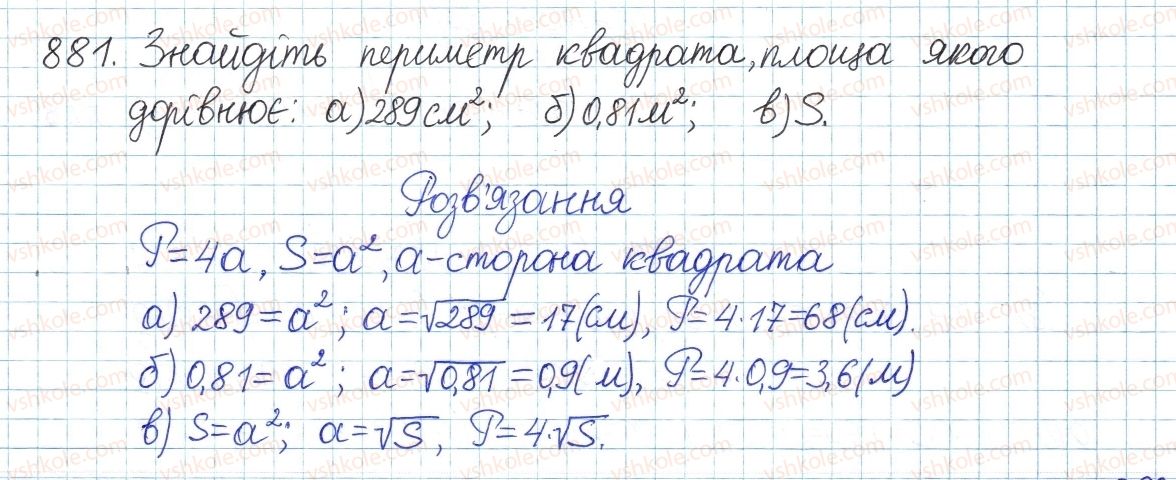 881. Знайдіть периметр квадрата, площа якого
дорівнює: а) 289 см²; б) 0,81 м²; в) S.
Розв'язання
P=4a, S=a², a-сторона квадрата
а) 289=a²; a=√289=17(см), P=4·17=68(см).
б) 0,81=a²; a=√0,81=0,9(м), P=4·0,9=3,6(м)
в) S=a²; a=√S, P=4·√S.